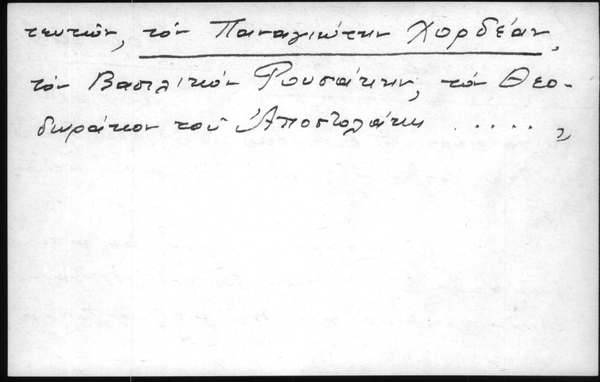 τευτῶν, τόν Παναγιώτην Χορδέαν,
τόν Βασιλικόν Ρουσάκην, τόν Θεο-
δωράκον τοῦ Ἀποστολάκη . . . . . ,,